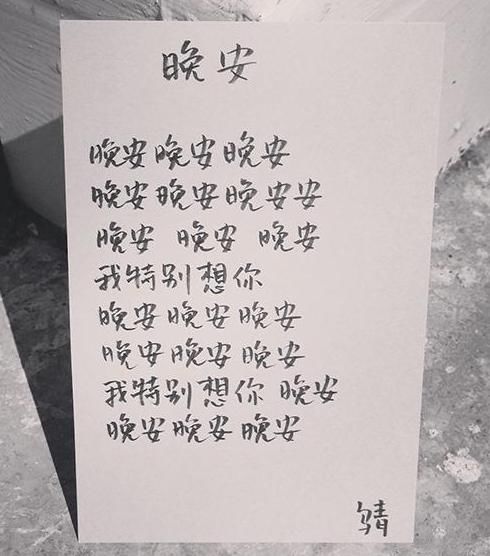 晚安
晚安晚安晚安
晚安晚安晚安安
晚安 晚安 晚安
我特别想你
晚安晚安晚安
晚安晚安晚安
我特别想你 晚安
晚安晚安晚安